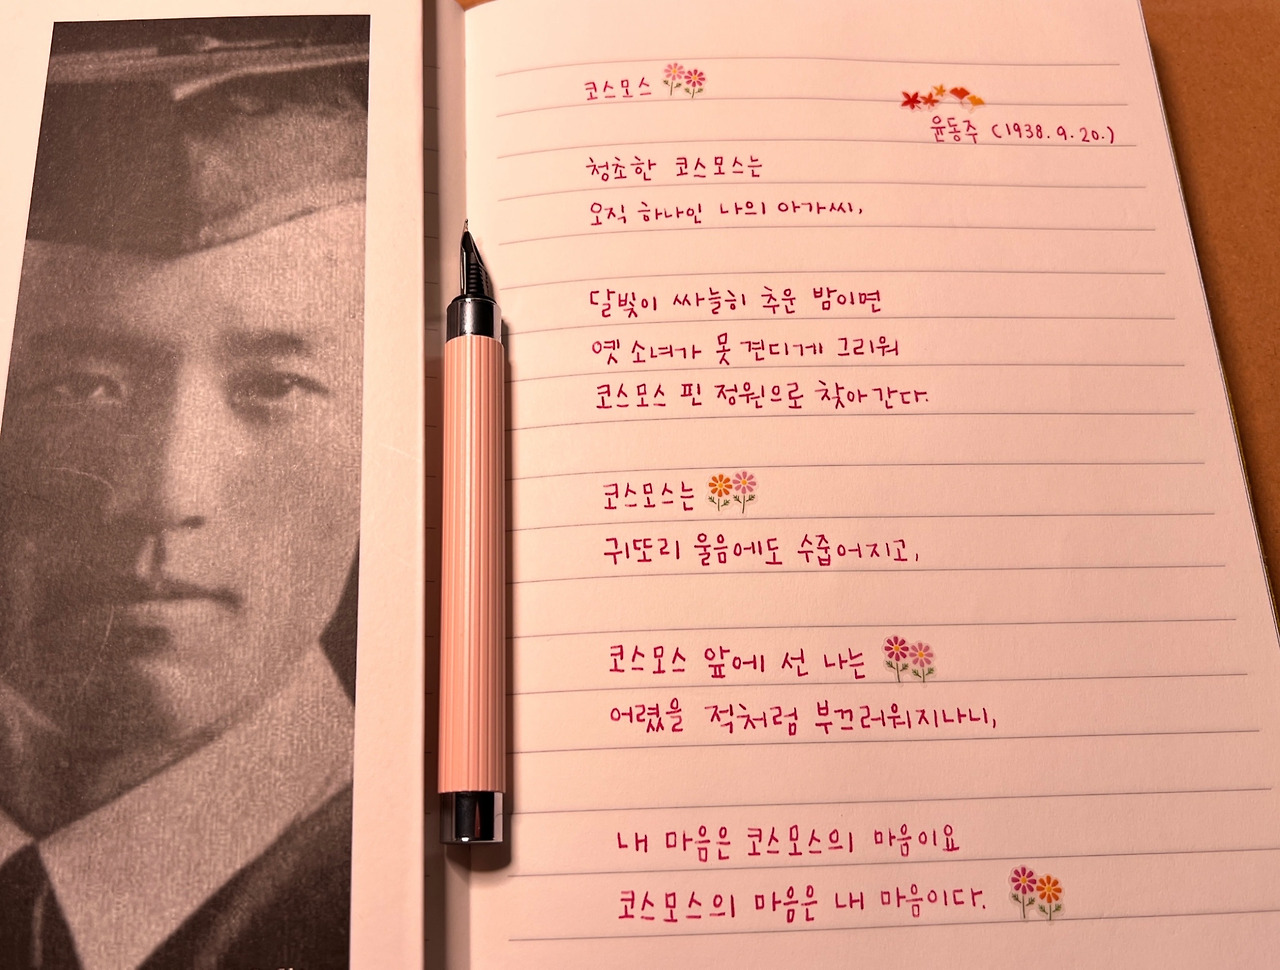 코스모스
윤동주 (1938.9.20.)
청초한 코스모스는
오직 하나인 나의 아가씨,
달빛이 싸늘히 추운 밤이면
옛 소녀가 못 견디게 그리워
코스모스 핀 정원으로 찾아간다.
코스모스는
귀또리 울음에도 수줍어지고,
코스모스 앞에 선 나는
어렸을 적처럼 부끄러워지나니,
내 마음은 코스모스의 마음이요
코스모스의 마음은 내 마음이다.